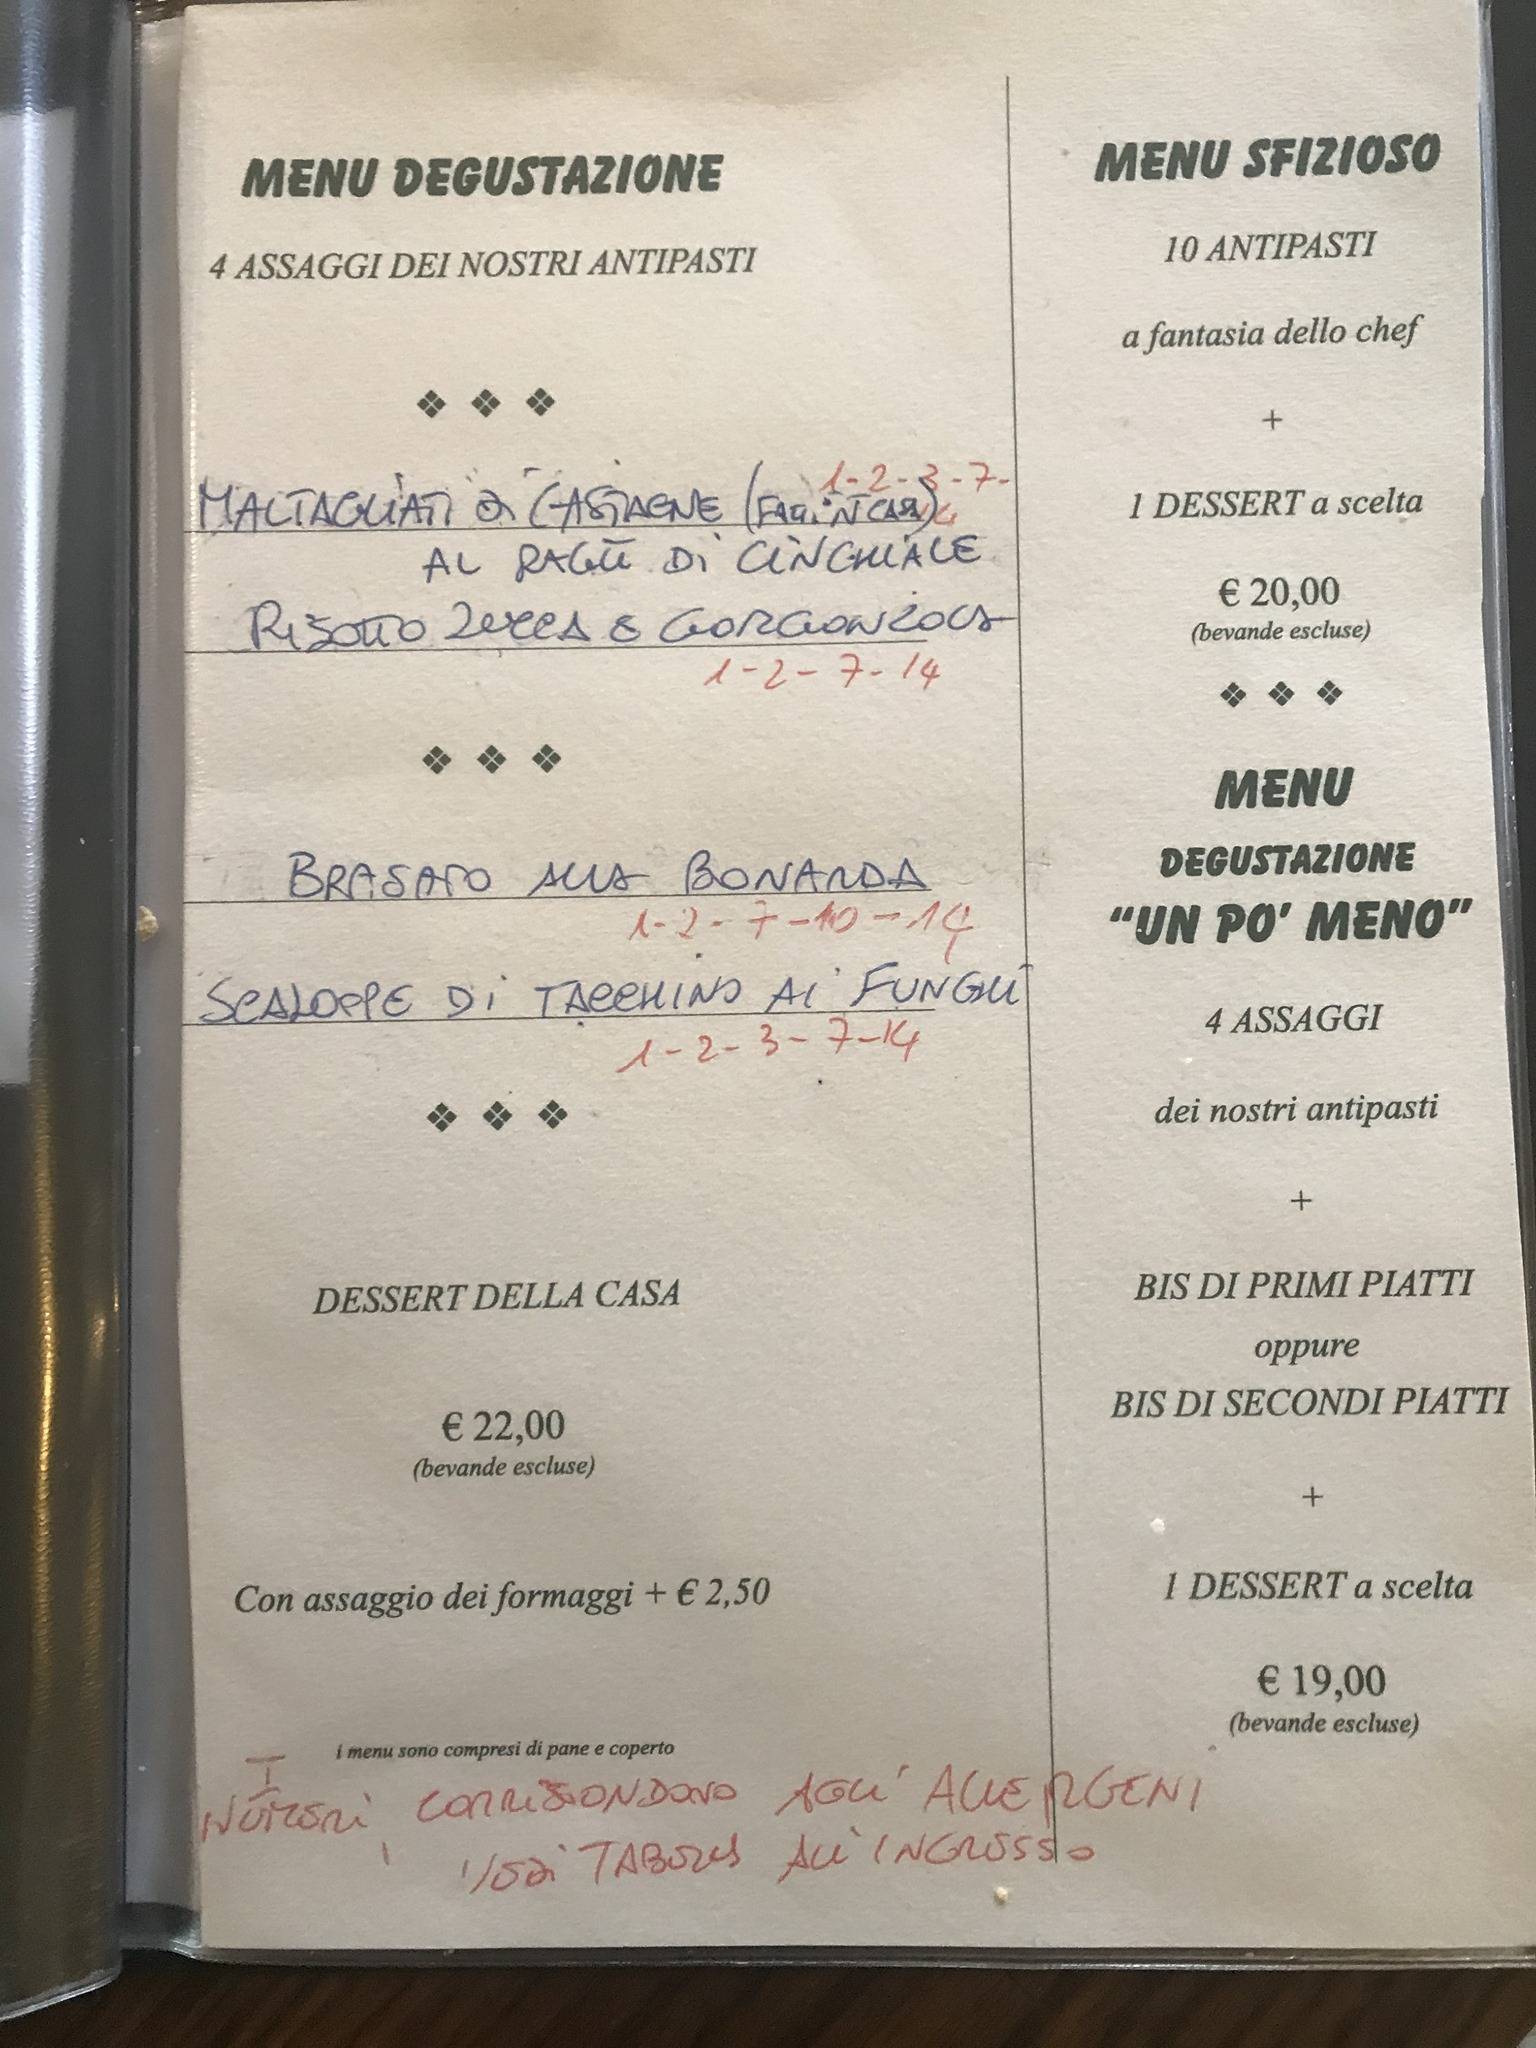 MENU DEGUSTAZIONE
4 ASSAGGI DEI NOSTRI ANTIPASTI
1-2-3-7-
14
MALTAGLIATI DI CASTAGNE (FATTI IN CASA)
AL RAGÙ DI CINGHIALE
RISOTTO ZUCCA E GORGONZOLA
1-2-7-14
BRASATO ALLA BONARDA
1-2-7-10-14
SCALOPPE DI TACCHINO AI FUNGHI
1-2-3-7-14
DESSERT DELLA CASA
€ 22,00
(bevande escluse)
Con assaggio dei formaggi + € 2,50
i menu sono compresi di pane e coperto
I NUMERI CORRISPONDONO AGLI ALLERGENI
VEDI TABELLA ALL'INGRESSO
MENU SFIZIOSO
10 ANTIPASTI
a fantasia dello chef
+
1 DESSERT a scelta
€ 20,00
(bevande escluse)
MENU
DEGUSTAZIONE
"UN PO' MENO"
4 ASSAGGI
dei nostri antipasti
+
BIS DI PRIMI PIATTI
oppure
BIS DI SECONDI PIATTI
+
1 DESSERT a scelta
€ 19,00
(bevande escluse)